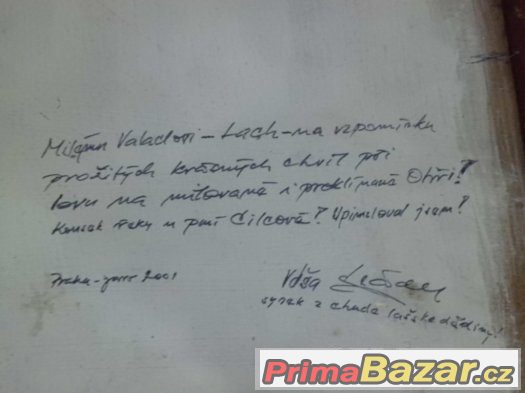 Milému Valadovi – Lach – na vzpomínku
prožitých krásných chvil při
lovu na milované i proklínané Ohři!
Kousek řeky u paní Cilcové! Upimloval jsem!
Praha – 2001
Váša
synek z chudé lašské dědiny!
PrimaBazar.cz